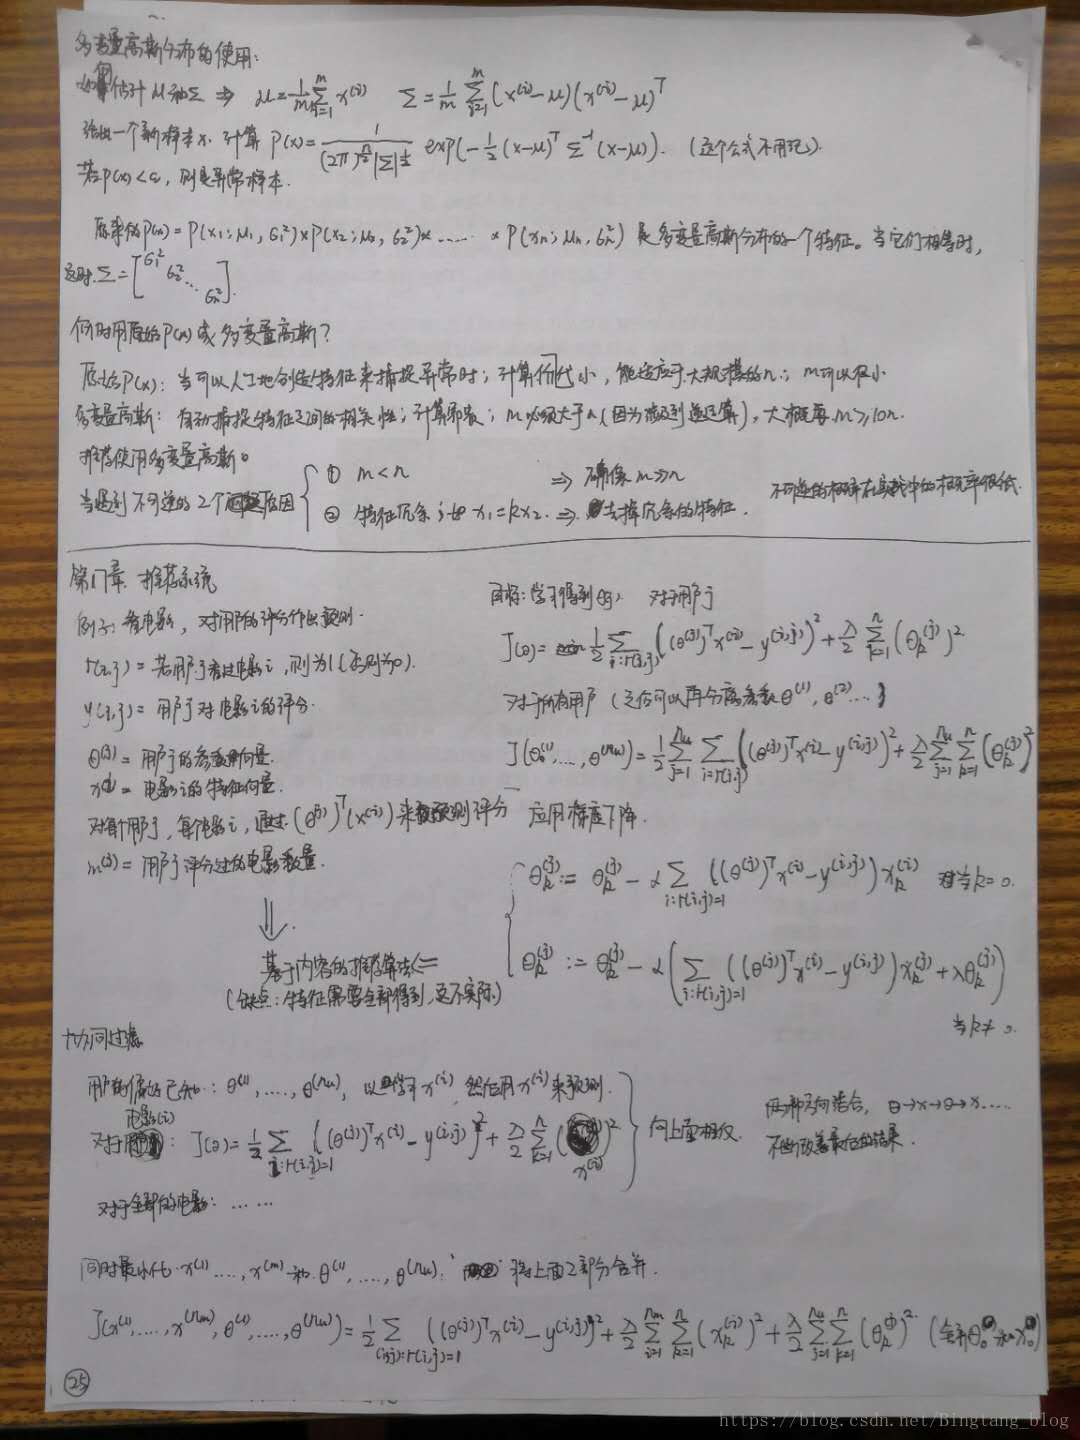 多变量高斯分布的使用:
如何估计μ和Σ ⇒ μ=1/m Σ_{i=1}^{m} x^(i)   Σ=1/m Σ_{i=1}^{m} (x^(i)-μ)(x^(i)-μ)^T
给出一个新样本x, 计算 P(x)=1/((2π)^{n/2}|Σ|^{1/2}) exp(-1/2 (x-μ)^T Σ^{-1} (x-μ)). (这个公式不用记).
若P(x)<ε, 则是异常样本.
原来的P(x)=P(x₁;μ₁,σ₁²)×P(x₂;μ₂,σ₂²)×……×P(xₙ;μₙ,σₙ²) 是多变量高斯分布的一个特征。当它们相等时,
这时.Σ=[σ₁² σ₂² ⋱ σₙ²].
何时用原始P(x)或多变量高斯?
原始P(x): 当可以人工地创造特征来捕捉异常时; 计算代价小, 能适应于大规模的n; m可以很小
多变量高斯: 自动捕捉特征之间的相关性; 计算昂贵; m必须大于n(因为涉及到逆运算), 大概要m≥10n.
推荐使用多变量高斯。
当遇到不可逆的2个原因 { ① m<n ⇒ 确保m≫n
② 特征冗余; 如x₁=kx₂. ⇒ 去掉冗余的特征.
不可逆的 在实践中的概率很低.
第17章. 推荐系统
例子: 看电影, 对用户的评分作出预测.
r(i,j)=若用户j看过电影i, 则为1(否则为0).
y(i,j)=用户j对电影i的评分.
θ^(j)=用户j的参数向量.
x^(i)=电影i的特征向量.
对每个用户j, 每个电影i, 通过(θ^(j))^T(x^(i))来预测评分
m^(j)=用户j评分过的电影数量.
⇓
基于内容的推荐算法⇐
(缺点: 特征需要全部得到, 这不实际)
目标: 学习得到θ^(j), 对于用户j
J(θ)=1/2 Σ_{i:r(i,j)} ((θ^(j))^T x^(i)-y^(i,j))²+λ/2 Σ_{k=1}^{n} (θ_k^(j))²
对于所有用户 (之后可以再分离参数θ^(1),θ^(2)…)
J(θ^(1),…,θ^(n_u))=1/2 Σ_{j=1}^{n_u} Σ_{i:r(i,j)} ((θ^(j))^T x^(i)-y^(i,j))²+λ/2 Σ_{j=1}^{n_u} Σ_{k=1}^{n} (θ_k^(j))²
应用梯度下降.
θ_k^(j):=θ_k^(j)-α Σ_{i:r(i,j)=1} ((θ^(j))^T x^(i)-y^(i,j)) x_k^(i) 当k=0.
θ_k^(j):=θ_k^(j)-α(Σ_{i:r(i,j)=1} ((θ^(j))^T x^(i)-y^(i,j)) x_k^(i)+λθ_k^(j))
当k≠0.
协同过滤
用户的偏好已知: θ^(1),….,θ^(n_u), 以学习x^(i), 然后用x^(i)来预测.
电影(i)
对于: J(θ)=1/2 Σ_{i:r(i,j)=1} ((θ^(j))^T x^(i)-y^(i,j))²+λ/2 Σ_{k=1}^{n} ( )²
x^(i)
对于全部的电影: ……
} 向上面相似
两部分结合, θ→x→θ→x……
不断改善最后的结果.
同时最小化 x^(1)….,x^(m) 和 θ^(1),….,θ^(n_u): 将上面2部分合并.
J(x^(1),….,x^(n_m),θ^(1),….,θ^(n_u))=1/2 Σ_{(i,j):r(i,j)=1} ((θ^(j))^T x^(i)-y^(i,j))²+λ/2 Σ_{i=1}^{n_m} Σ_{k=1}^{n} (x_k^(i))²+λ/2 Σ_{j=1}^{n_u} Σ_{k=1}^{n} (θ_k^(j))². (舍弃θ₀和x₀)
25
https://blog.csdn.net/Bingtang_blog